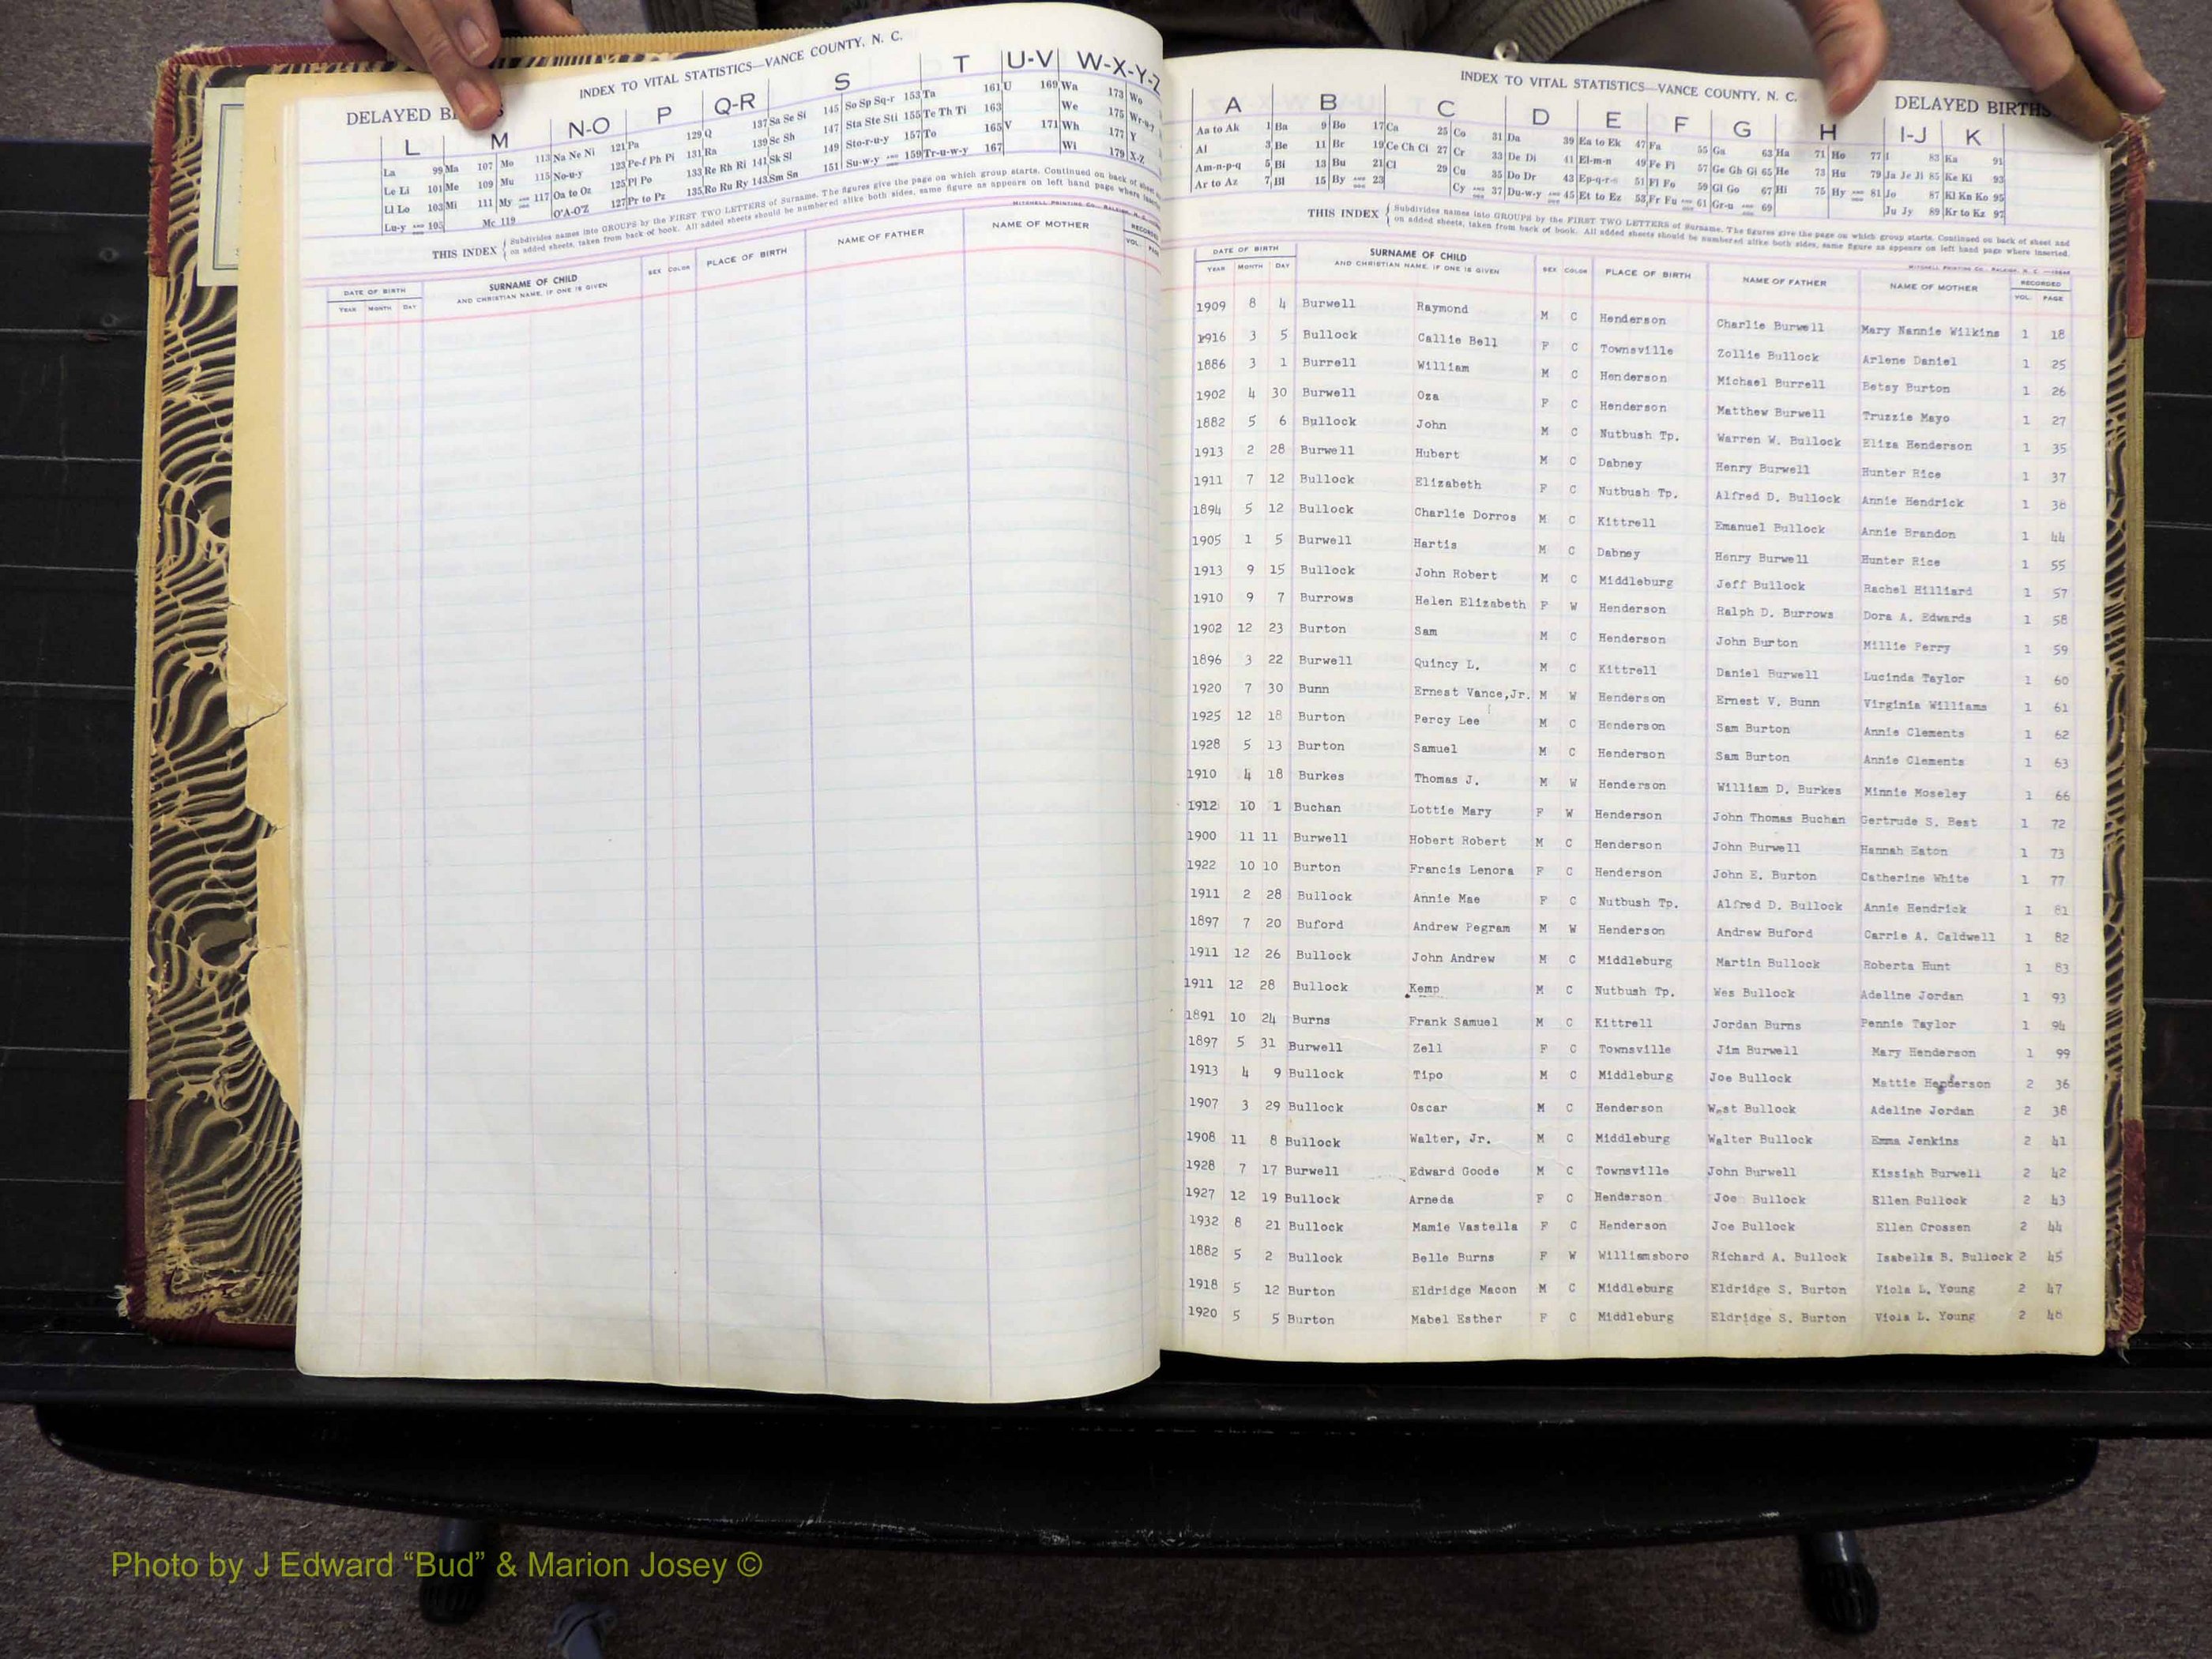 INDEX TO VITAL STATISTICS—VANCE COUNTY, N. C.
DELAYED
L M N-O P Q-R S T U-V W-X-Y-Z
La 99 Ma 107 Mo 113 Na Ne Ni 121 Pa 129 Q 137 Sa Se Si 145 So Sp Sq-r 153 Ta 161 U 169 Wa 173 Wo
Le Li 101 Me 109 Mu 115 No-u-y 123 Pe-f Ph Pi 131 Ra 139 Sc Sh 147 Sta Ste Sti 155 Te Th Ti 163 We 175 Wr-u-y
Ll Lo 103 Mi 111 My AND 117 Oa to Oz 125 Pl Po 133 Re Rh Ri 141 Sk Sl 149 Sto-r-u-y 157 To 165 V 171 Wh 177 Y
Lu-y AND 105 Mc 119 O'A-O'Z 127 Pr to Pz 135 Ro Ru Ry 143 Sm Sn 151 Su-w-y AND 159 Tr-u-w-y 167 Wi 179 X-Z
THIS INDEX { Subdivides names into GROUPS by the FIRST TWO LETTERS of Surname. The figures give the page on which group starts. Continued on back of sheet
on added sheets, taken from back of book. All added sheets should be numbered alike both sides, same figure as appears on left hand page where
DATE OF BIRTH SURNAME OF CHILD SEX COLOR PLACE OF BIRTH NAME OF FATHER NAME OF MOTHER
YEAR MONTH DAY AND CHRISTIAN NAME, IF ONE IS GIVEN VOL.
INDEX TO VITAL STATISTICS—VANCE COUNTY, N. C.
DELAYED BIRTHS
A B C D E F G H I-J K
Aa to Ak 1 Ba 9 Bo 17 Ca 25 Co 31 Da 39 Ea to Ek 47 Fa 55 Ga 63 Ha 71 Ho 77 I 83 Ka 91
Al 3 Be 11 Br 19 Ce Ch Ci 27 Cr 33 De Di 41 El-m-n 49 Fe Fi 57 Ge Gh Gi 65 He 73 Hu 79 Ja Je Ji 85 Ke Ki 93
Am-n-p-q 5 Bi 13 Bu 21 Cl 29 Cu 35 Do Dr 43 Ep-q-r-s 51 Fl Fo 59 Gl Go 67 Hi 75 Hy AND 81 Jo 87 Kl Kn Ko 95
Ar to Az 7 Bl 15 By AND 23 Cy AND 37 Du-w-y AND 45 Et to Ez 53 Fr Fu AND 61 Gr-u AND 69 Ju Jy 89 Kr to Kz 97
THIS INDEX { Subdivides names into GROUPS by the FIRST TWO LETTERS of Surname. The figures give the page on which group starts. Continued on back of sheet and
on added sheets, taken from back of book. All added sheets should be numbered alike both sides, same figure as appears on left hand page where inserted.
DATE OF BIRTH SURNAME OF CHILD SEX COLOR PLACE OF BIRTH NAME OF FATHER NAME OF MOTHER RECORDED
YEAR MONTH DAY AND CHRISTIAN NAME, IF ONE IS GIVEN VOL. PAGE
1909 8 4 Burwell Raymond M C Henderson Charlie Burwell Mary Nannie Wilkins 1 18
1916 3 5 Bullock Callie Bell F C Townsville Zollie Bullock Arlene Daniel 1 25
1886 3 1 Burrell William M C Henderson Michael Burrell Betsy Burton 1 26
1902 4 30 Burwell Oza F C Henderson Matthew Burwell Truzzie Mayo 1 27
1882 5 6 Bullock John M C Nutbush Tp. Warren W. Bullock Eliza Henderson 1 35
1913 2 28 Burwell Hubert M C Dabney Henry Burwell Hunter Rice 1 37
1911 7 12 Bullock Elizabeth F C Nutbush Tp. Alfred D. Bullock Annie Hendrick 1 38
1894 5 12 Bullock Charlie Dorros M C Kittrell Emanuel Bullock Annie Brandon 1 44
1905 1 5 Burwell Hartis M C Dabney Henry Burwell Hunter Rice 1 55
1913 9 15 Bullock John Robert M C Middleburg Jeff Bullock Rachel Hilliard 1 57
1910 9 7 Burrows Helen Elizabeth F W Henderson Ralph D. Burrows Dora A. Edwards 1 58
1902 12 23 Burton Sam M C Henderson John Burton Millie Perry 1 59
1896 3 22 Burwell Quincy L. M C Kittrell Daniel Burwell Lucinda Taylor 1 60
1920 7 30 Bunn Ernest Vance,Jr. M W Henderson Ernest V. Bunn Virginia Williams 1 61
1925 12 18 Burton Percy Lee M C Henderson Sam Burton Annie Clements 1 62
1928 5 13 Burton Samuel M C Henderson Sam Burton Annie Clements 1 63
1910 4 18 Burkes Thomas J. M W Henderson William D. Burkes Minnie Moseley 1 66
1912 10 1 Buchan Lottie Mary F W Henderson John Thomas Buchan Gertrude S. Best 1 72
1900 11 11 Burwell Hobert Robert M C Henderson John Burwell Hannah Eaton 1 73
1922 10 10 Burton Francis Lenora F C Henderson John E. Burton Catherine White 1 77
1911 2 28 Bullock Annie Mae F C Nutbush Tp. Alfred D. Bullock Annie Hendrick 1 81
1897 7 20 Buford Andrew Pegram M W Henderson Andrew Buford Carrie A. Caldwell 1 82
1911 12 26 Bullock John Andrew M C Middleburg Martin Bullock Roberta Hunt 1 83
1911 12 28 Bullock Kemp M C Nutbush Tp. Wes Bullock Adeline Jordan 1 93
1891 10 24 Burns Frank Samuel M C Kittrell Jordan Burns Pennie Taylor 1 94
1897 5 31 Burwell Zell F C Townsville Jim Burwell Mary Henderson 1 99
1913 4 9 Bullock Tipo M C Middleburg Joe Bullock Mattie Henderson 2 36
1907 3 29 Bullock Oscar M C Henderson West Bullock Adeline Jordan 2 38
1908 11 8 Bullock Walter, Jr. M C Middleburg Walter Bullock Emma Jenkins 2 41
1928 7 17 Burwell Edward Goode M C Townsville John Burwell Kissiah Burwell 2 42
1927 12 19 Bullock Arneda F C Henderson Joe Bullock Ellen Bullock 2 43
1932 8 21 Bullock Mamie Vastella F C Henderson Joe Bullock Ellen Crossen 2 44
1882 5 2 Bullock Belle Burns F W Williamsboro Richard A. Bullock Isabella B. Bullock 2 45
1918 5 12 Burton Eldridge Macon M C Middleburg Eldridge S. Burton Viola L. Young 2 47
1920 5 5 Burton Mabel Esther F C Middleburg Eldridge S. Burton Viola L. Young 2 48
Photo by J Edward “Bud” & Marion Josey ©